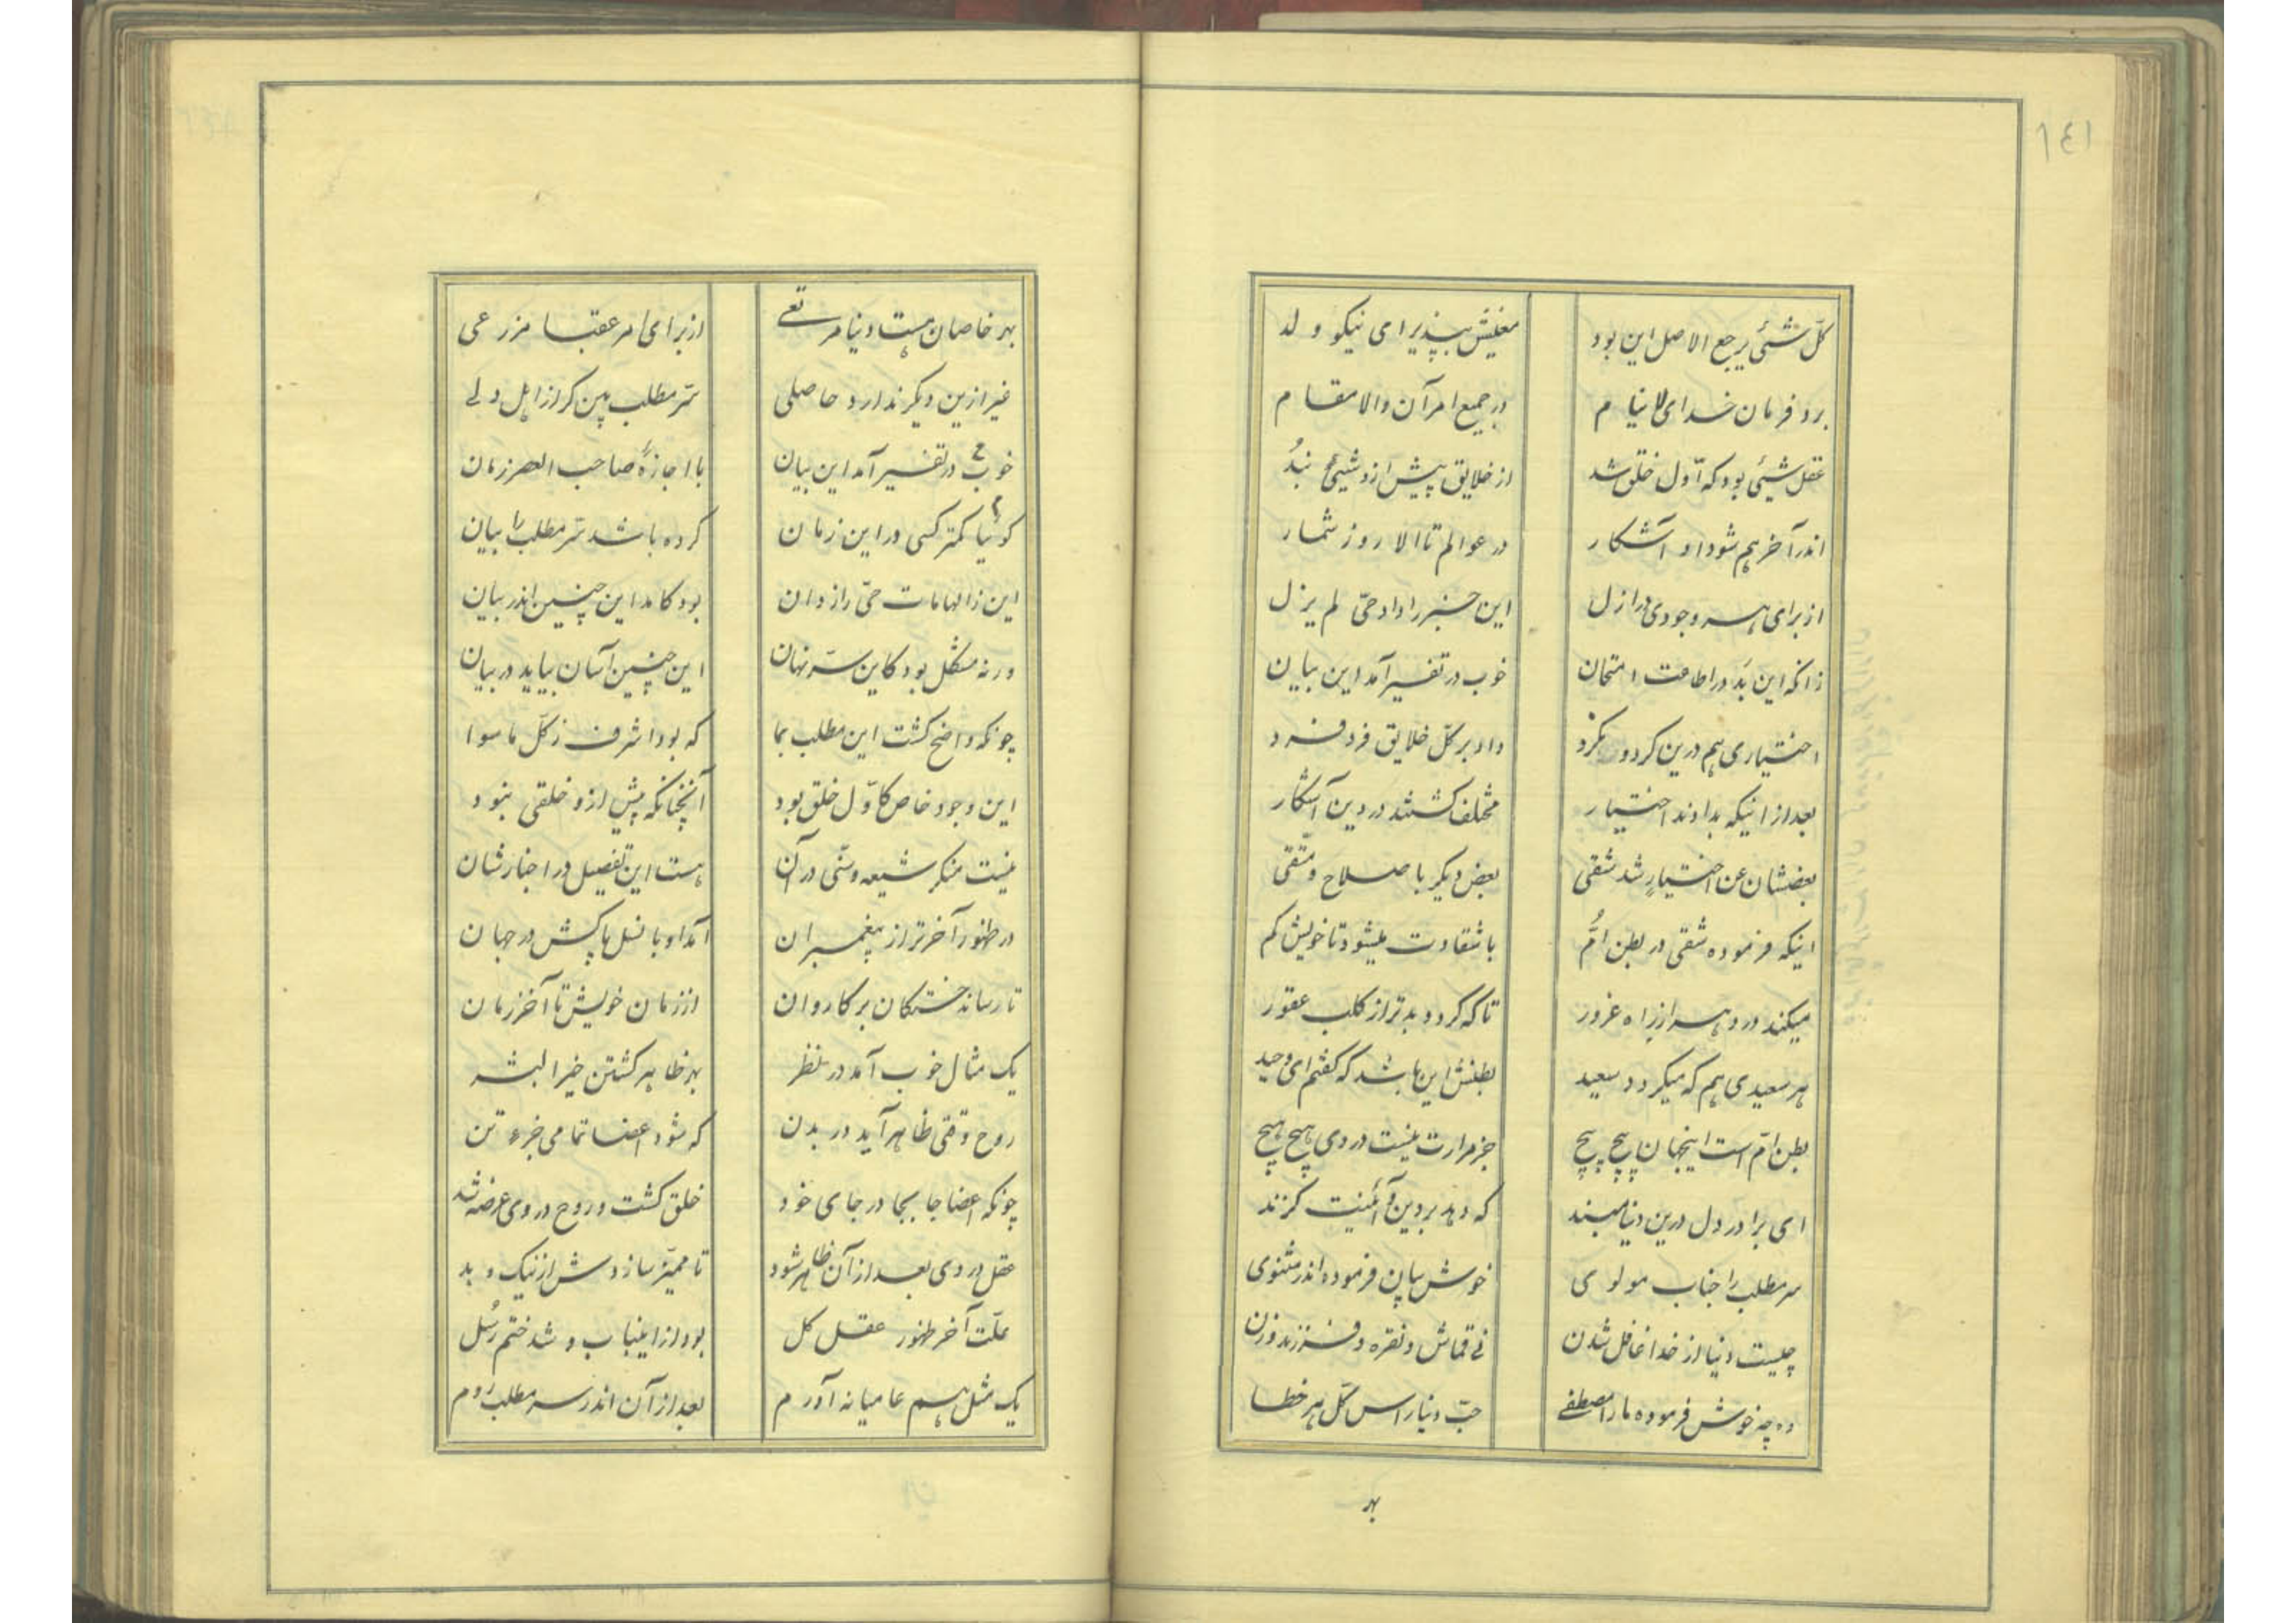 ١٤١
کلّ شئی یرجع الاصل این بود معنیش بپذیر ای نیکو ولد
برد فرمان خدای لاینام در جمیع امر آن والا مقام
عقل شیئی بود که اوّل خلق شد از خلایق پیش ازو شیئی نبُد
اندر آخر هم شود او آشکار در عوالم تا الا روز شمار
از برای هر وجودی در ازل این خبر را داد حیّ لم یزل
زانکه این بَد در اطاعت امتحان خوب در تفسیر آمد این بیان
اختیاری هم درین کرد و نکرد داد بر کلّ خلایق فرد فرد
بعد از اینکه بدادند اختیار مختلف گشتند در دین آشکار
بعضشان عن اختیارٍ شد شقی بعض دیگر با صلاح و متّقی
اینکه فرموده شقی در بطن امُّ با شقاوت میشود تا خویش گم
میکند در دهر از راه غرور تا که گردد بدتر از کلب عقور
هر سعیدی هم که میگردد سعید بطنش این باشد که گفتم ای وحید
بطن امّ است اینجهان پیچ پیچ جز مرارت نیست در وی هیچ هیچ
ای برادر دل درین دنیا مبند که دهد بر دین و آئینت گزند
سر مطلب را جناب مولوی خوش بیان فرموده اندر مثنوی
چیست دنیا از خدا غافل شدن نی قماش و نقره و فرزند و زن
وه چه خوش فرموده ما را مصطفی حبّ دنیا راس کلّ هر خطا
بهر
بهر خاصان هست دنیا مرتعی از برای امر عقبا مزرعی
غیر ازین دیگر ندارد حاصلی سّر مطلب بین گر از اهل دلی
خوب در تفسیر آمد این بیان با اجازهٔ صاحب العصر زمان
گوئیا کمتر کسی در این زمان کرده باشد سّر مطلب را بیان
این ز الهامات حیّ رازدان بود کامد این چنین اندر بیان
ورنه مشگل بود کاین سّر نهان این چنین آسان بیاید در بیان
چونکه واضح گشت این مطلب بما که بود اشرف ز کلّ ماسوا
این وجود خاص کاوّل خلق بود آنچنانکه پیش ازو خلقی نبود
نیست منکر شیعه و سنّی در آن هست این تفصیل در اخبارشان
در ظهور آخرتر از پیغمبران آمد او با نسل پاکش در جهان
تا رساند خستگان بر کاروان از زمان خویش تا آخر زمان
یک مثال خوب آمد در نظر بهر ظاهر گشتن خیر البشر
روح وقتی ظاهر آید در بدن که شود اعضا تمامی جزء تن
چونکه اعضا جا بجا در جای خود خلق گشت و روح در وی عرضه شد
عقل در وی بعد از آن ظاهر شود تا ممیّز سازدش از نیک و بد
علّت آخر ظهور عقل کل بود از اینباب و شد ختم رُسل
یک مثل هم عامیانه آورم بعد از آن اندر سر مطلب روم